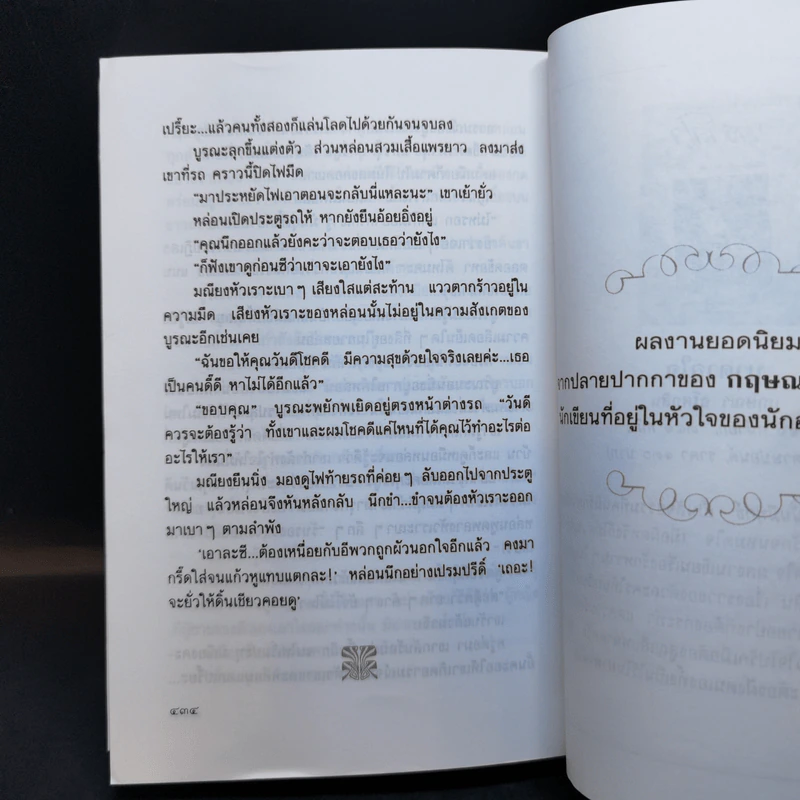 เปรี๊ยะ...แล้วคนทั้งสองก็แล่นโลดไปด้วยกันจนจบลง
บูรณะลุกขึ้นแต่งตัว ส่วนหล่อนสวมเสื้อแพรยาว ลงมาส่ง
เขาที่รถ คราวนี้ปิดไฟมืด
“มาประหยัดไฟเอาตอนจะกลับนี่แหละนะ” เขาเย้ายั่ว
หล่อนเปิดประตูรถให้ หากยังยืนอ้อยอิ่งอยู่
“คุณนึกออกแล้วยังคะว่าจะตอบเธอว่ายังไง”
“ก็ฟังเขาดูก่อนซีว่าเขาจะเอายังไง”
มณียงหัวเราะเบาๆ เสียงใสแต่สะท้าน แววตากร้าวอยู่ใน
ความมืด เสียงหัวเราะของหล่อนนั้นไม่อยู่ในความสังเกตของ
บูรณะอีกเช่นเคย
“ฉันขอให้คุณวันดีโชคดี มีความสุขด้วยใจจริงเลยค่ะ...เธอ
เป็นคนดี๊ดี หาไม่ได้อีกแล้ว”
“ขอบคุณ” บูรณะพยักพเยิดอยู่ตรงหน้าต่างรถ “วันดี
ควรจะต้องรู้ว่า ทั้งเขาและผมโชคดีแค่ไหนที่ได้คุณไว้ทำอะไรต่อ
อะไรให้เรา”
มณียงยืนนิ่ง มองดูไฟท้ายรถที่ค่อยๆ ลับออกไปจากประตู
ใหญ่ แล้วหล่อนจึงหันหลังกลับ นึกขำ...ขำจนต้องหัวเราะออก
มาเบาๆ ตามลำพัง
‘เอาละซี...ต้องเหนื่อยกับอีพวกถูกผัวนอกใจอีกแล้ว คงมา
กรี๊ดใส่จนแก้วหูแทบแตกละ!’ หล่อนนึกอย่างเปรมปรีดิ์ ‘เถอะ!
จะยั่วให้ดิ้นเชียวคอยดู’
๔๓๔
ผลงานยอดนิยม
จากปลายปากกาของ กฤษณ
นักเขียนที่อยู่ในหัวใจของนัก